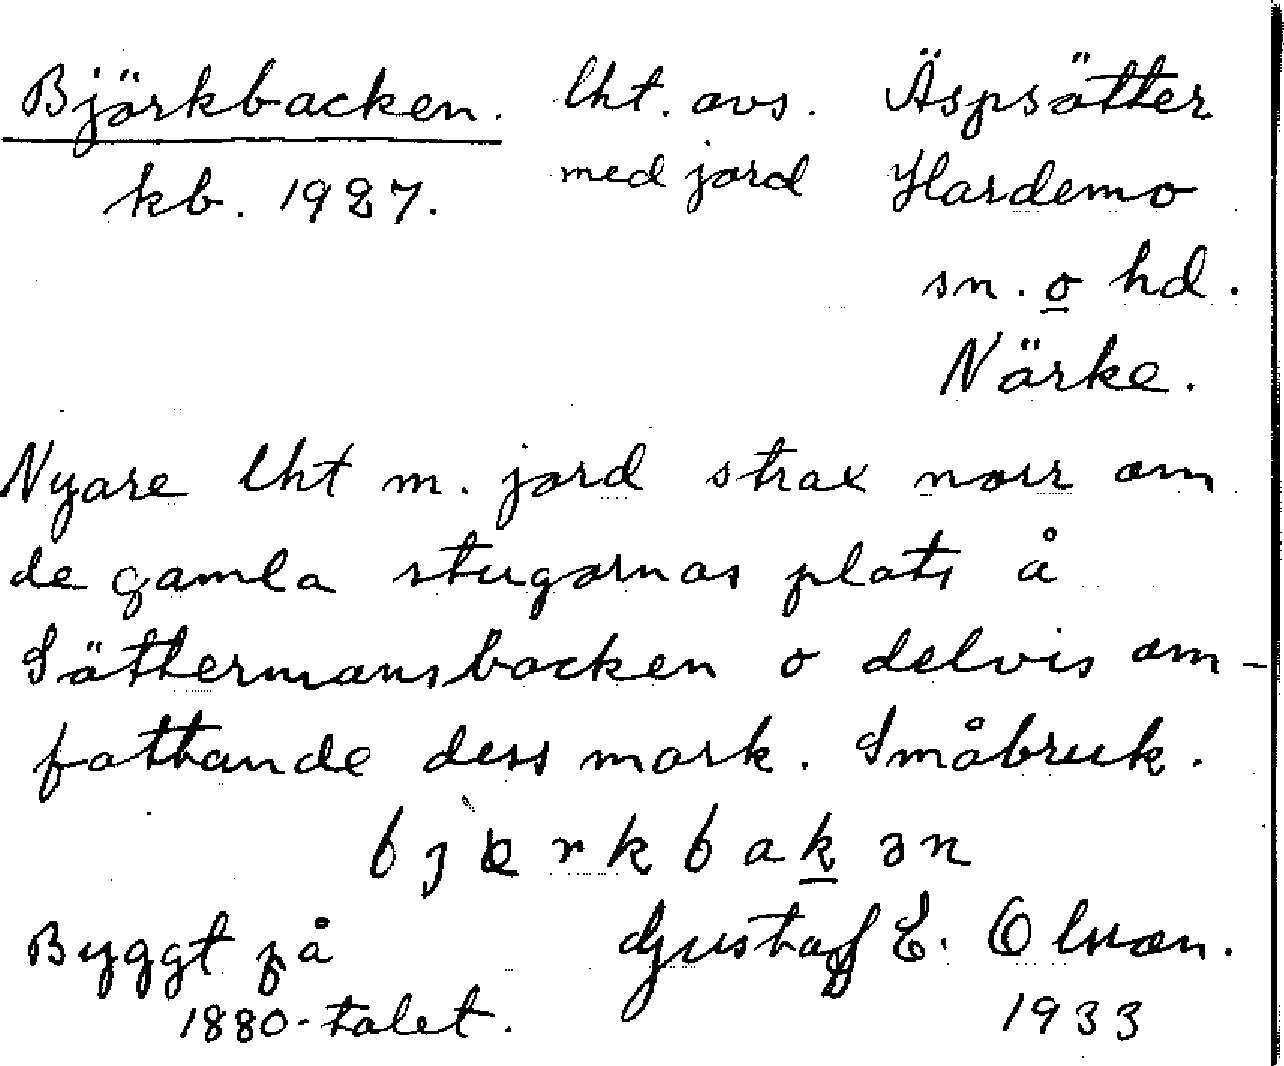 Björkbacken. lht. avs. Äspsätter
kb. 1927. med jord Hardemo
sn. o hd.
Närke.
Nyare lht m. jord strax norr om
de gamla stugornas plats å
Sättermansbacken o delvis om-
fattande dess mark. Småbruk.
rkbakən
Byggt på Gustaf E. Olsson.
1880-talet. 1933